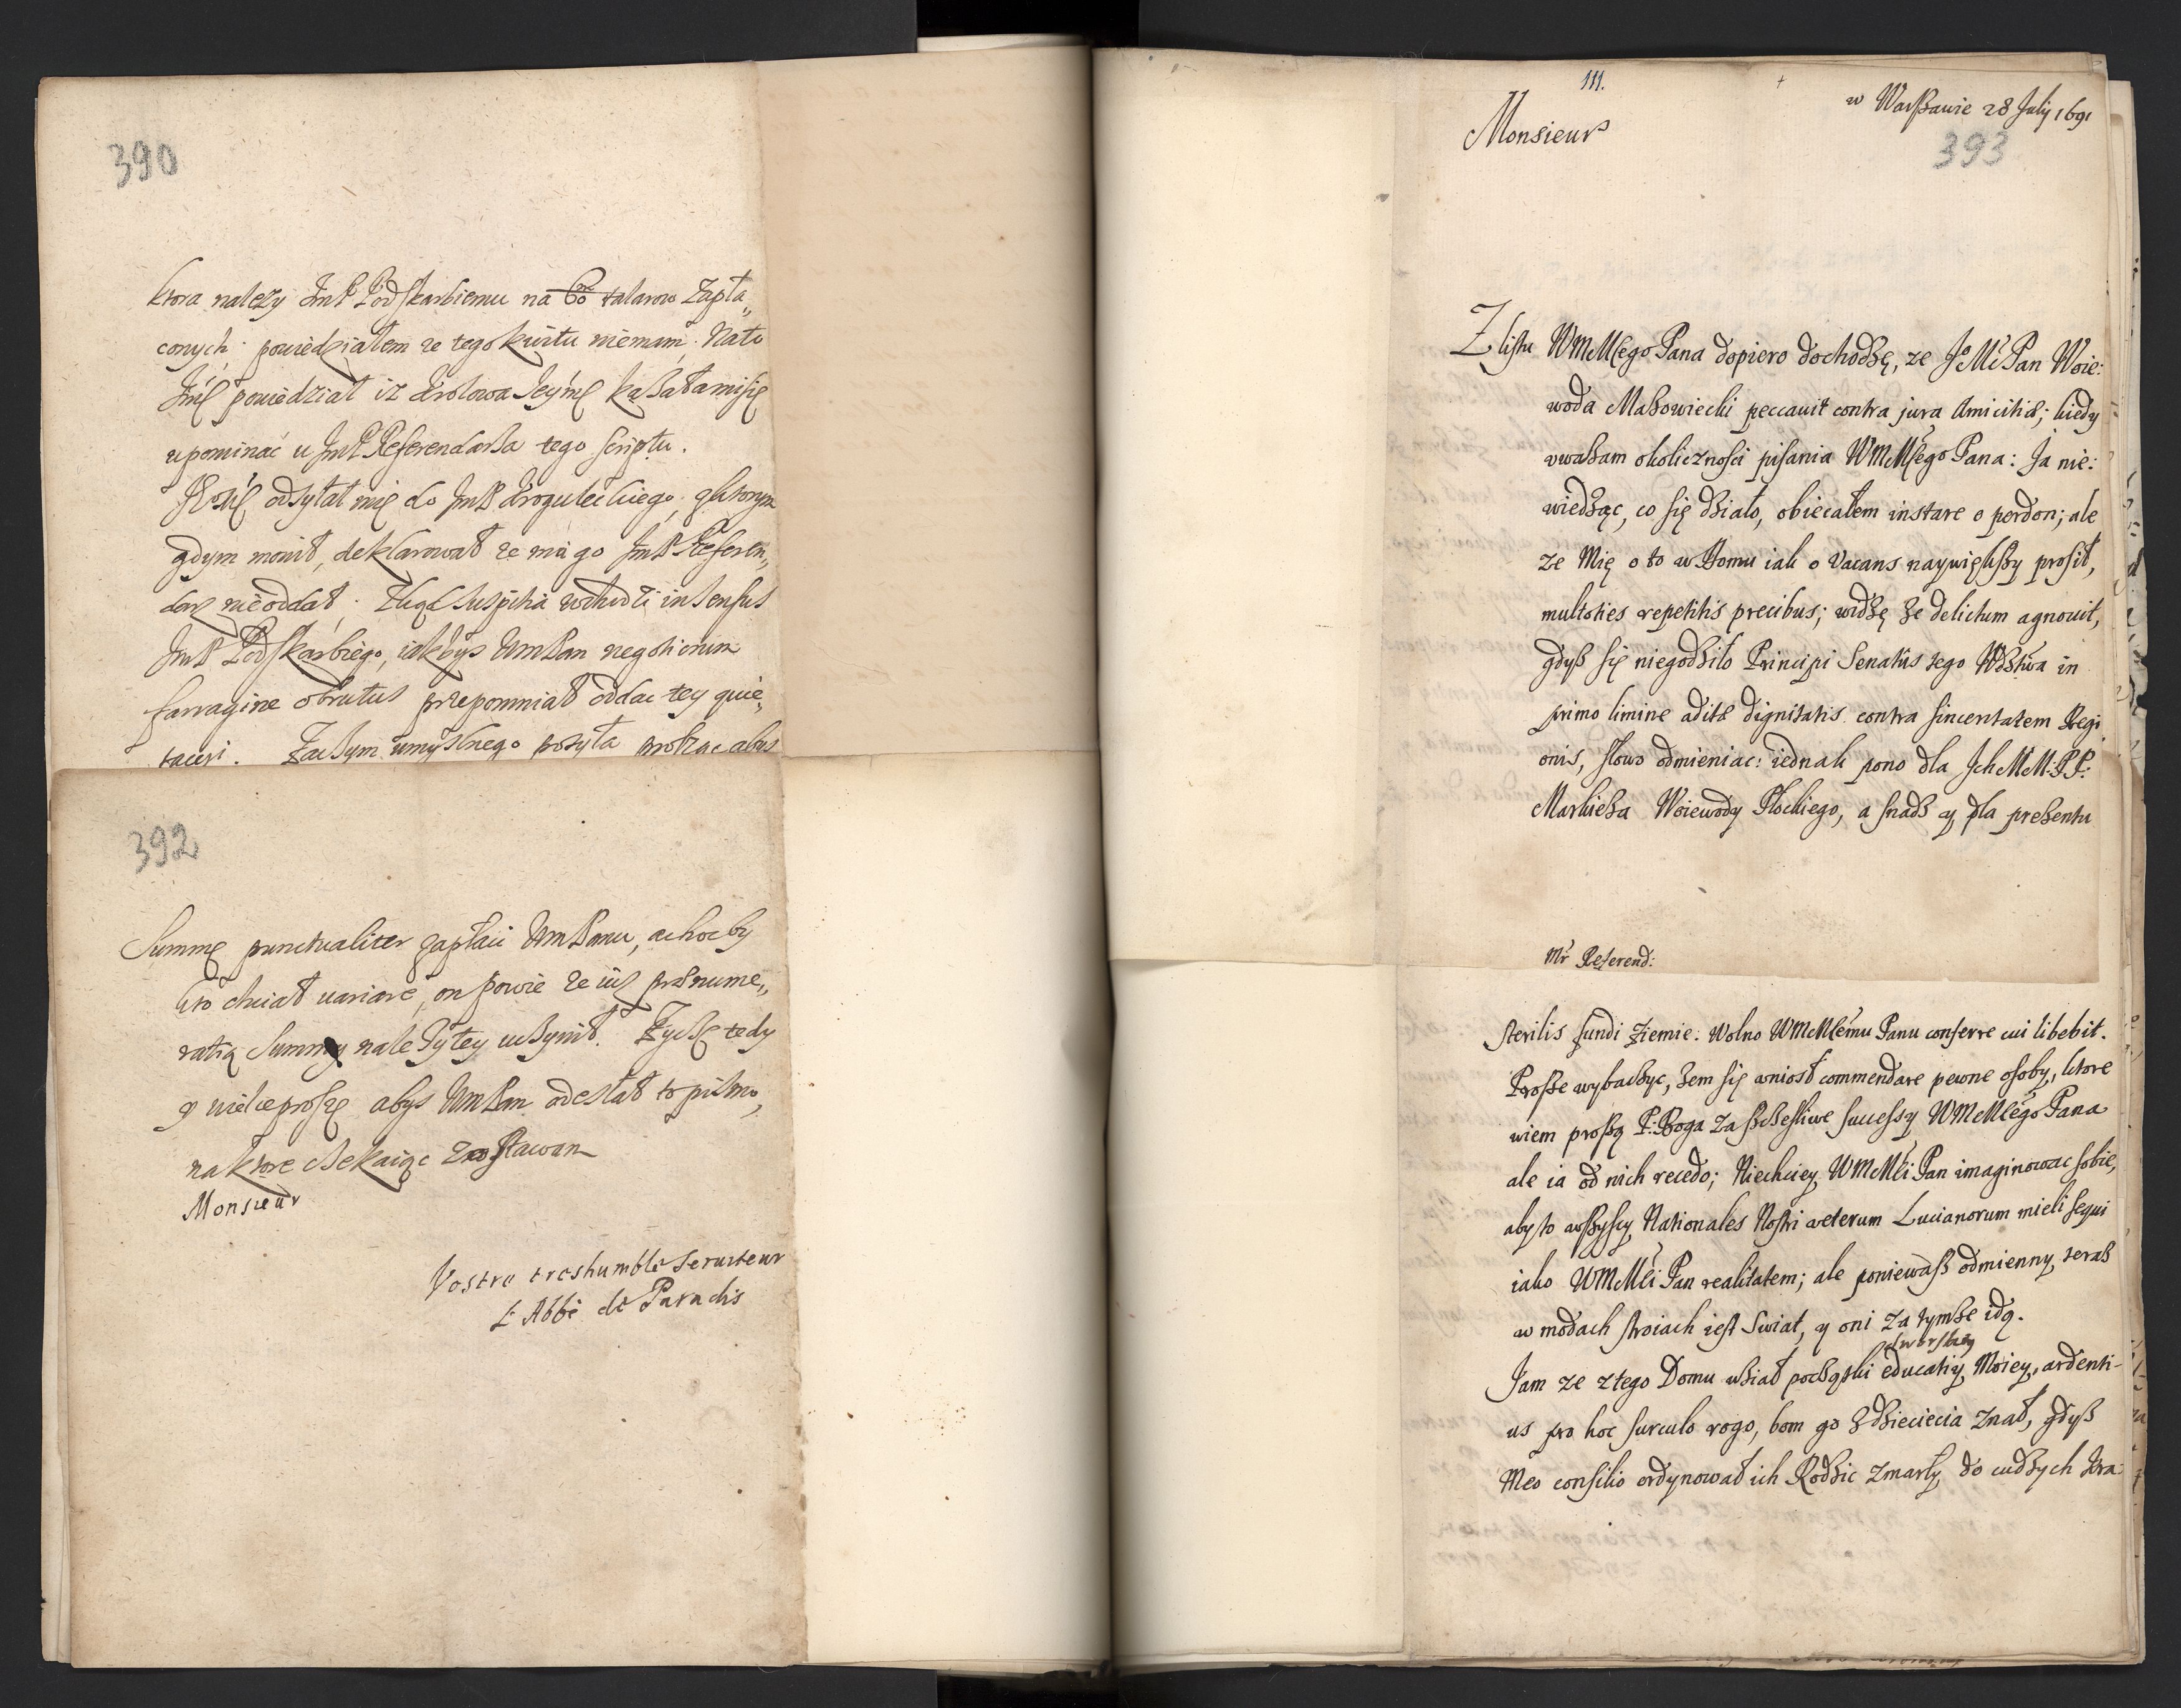 390
ktora nalezy JmP Podskarbiemu na 60 talarow Zapła„
conych. powiedziałem ze tego kwitu niemam. Nato
Jmę powiedział iz Krolowa Jeymę kazałamisię
upominać u JmP Referendarza tego scriptu.
odsyłał mię do JmP Drozuleckiego, gktorym
gdym mowił, deklarował ze ma go JmP Referen„
darz nieoddał. Ztąd suspitia wchodzi in sensus
JmP Podskarbiego, iakbys WmPan negotiorum
farragine obrutus przepomniał oddac tey quie„
tacyi. Zaczym umyslnego posyła prosząc abys
392
Summę punctualiter zapłaci WmPanu, achocby
kto chciał uariare, on powie ze iuz prænume„
ratią Summy nalezytey uczynił. Zyczę tedy
y wielce proszę abys WmPan odesłał to pismo,
naktore czekaiąc zostawam
Monsieur
Vostre treshumble Seruiteur
L'Abbé de Paradis
111.
w Warszawie 28 July 1691
Monsieur
393
Z listu WMMłego Pana dopiero dochodzę, ze JoMć Pan Woie:
woda Mazowiecki peccauit contra jura Amicitiæ; kiedy
uwazam okolicznosci pisania WMMłego Pana: Ja nie:
wiedząc, co się działo, obiecałem instare o perdon; ale
ze Mię o to w Domu iak o Vacans naywiększy prosił,
multoties repetitis precibus; widzę ze delictum agnouit,
gdysz się niegodziło Principi Senatus tego Wdztwa in
primo limine aditæ dignitatis contra sinceritatem Regi
onis, słowo odmieniac: iednak pono dla Ich MM: PP:
Markieza Woiewody Płockiego, a snadz y dla prezentu
Mr Referend:
sterilis fundi ziemie: Wolno WMMłemu Panu conferre cui libebit.
Prosze wybaczyc, zem się wniosł commendare pewne osoby, ktore
wiem proszą P: Boga za szczesliwe successy WMMłego Pana
ale ia od nich recedo; Niechciey WMMłći Pan imaginowac sobie,
aby to wszyscy Nationales Nostri veterum Lucianorum mieli sequi
iako WMMłći Pan realitatem; ale poniewasz odmienny teraz
w modach stroiach iest Swiat, y oni za tymze idą.
dworskiey
Jam ze ztego Domu wział początki educatiy Moiey, ardenti-
us pro hoc surculo rogo, bom go z dzieciecia znał, gdysz
Meo consilio ordynował ich Rodzic zmarły do cudzych kra